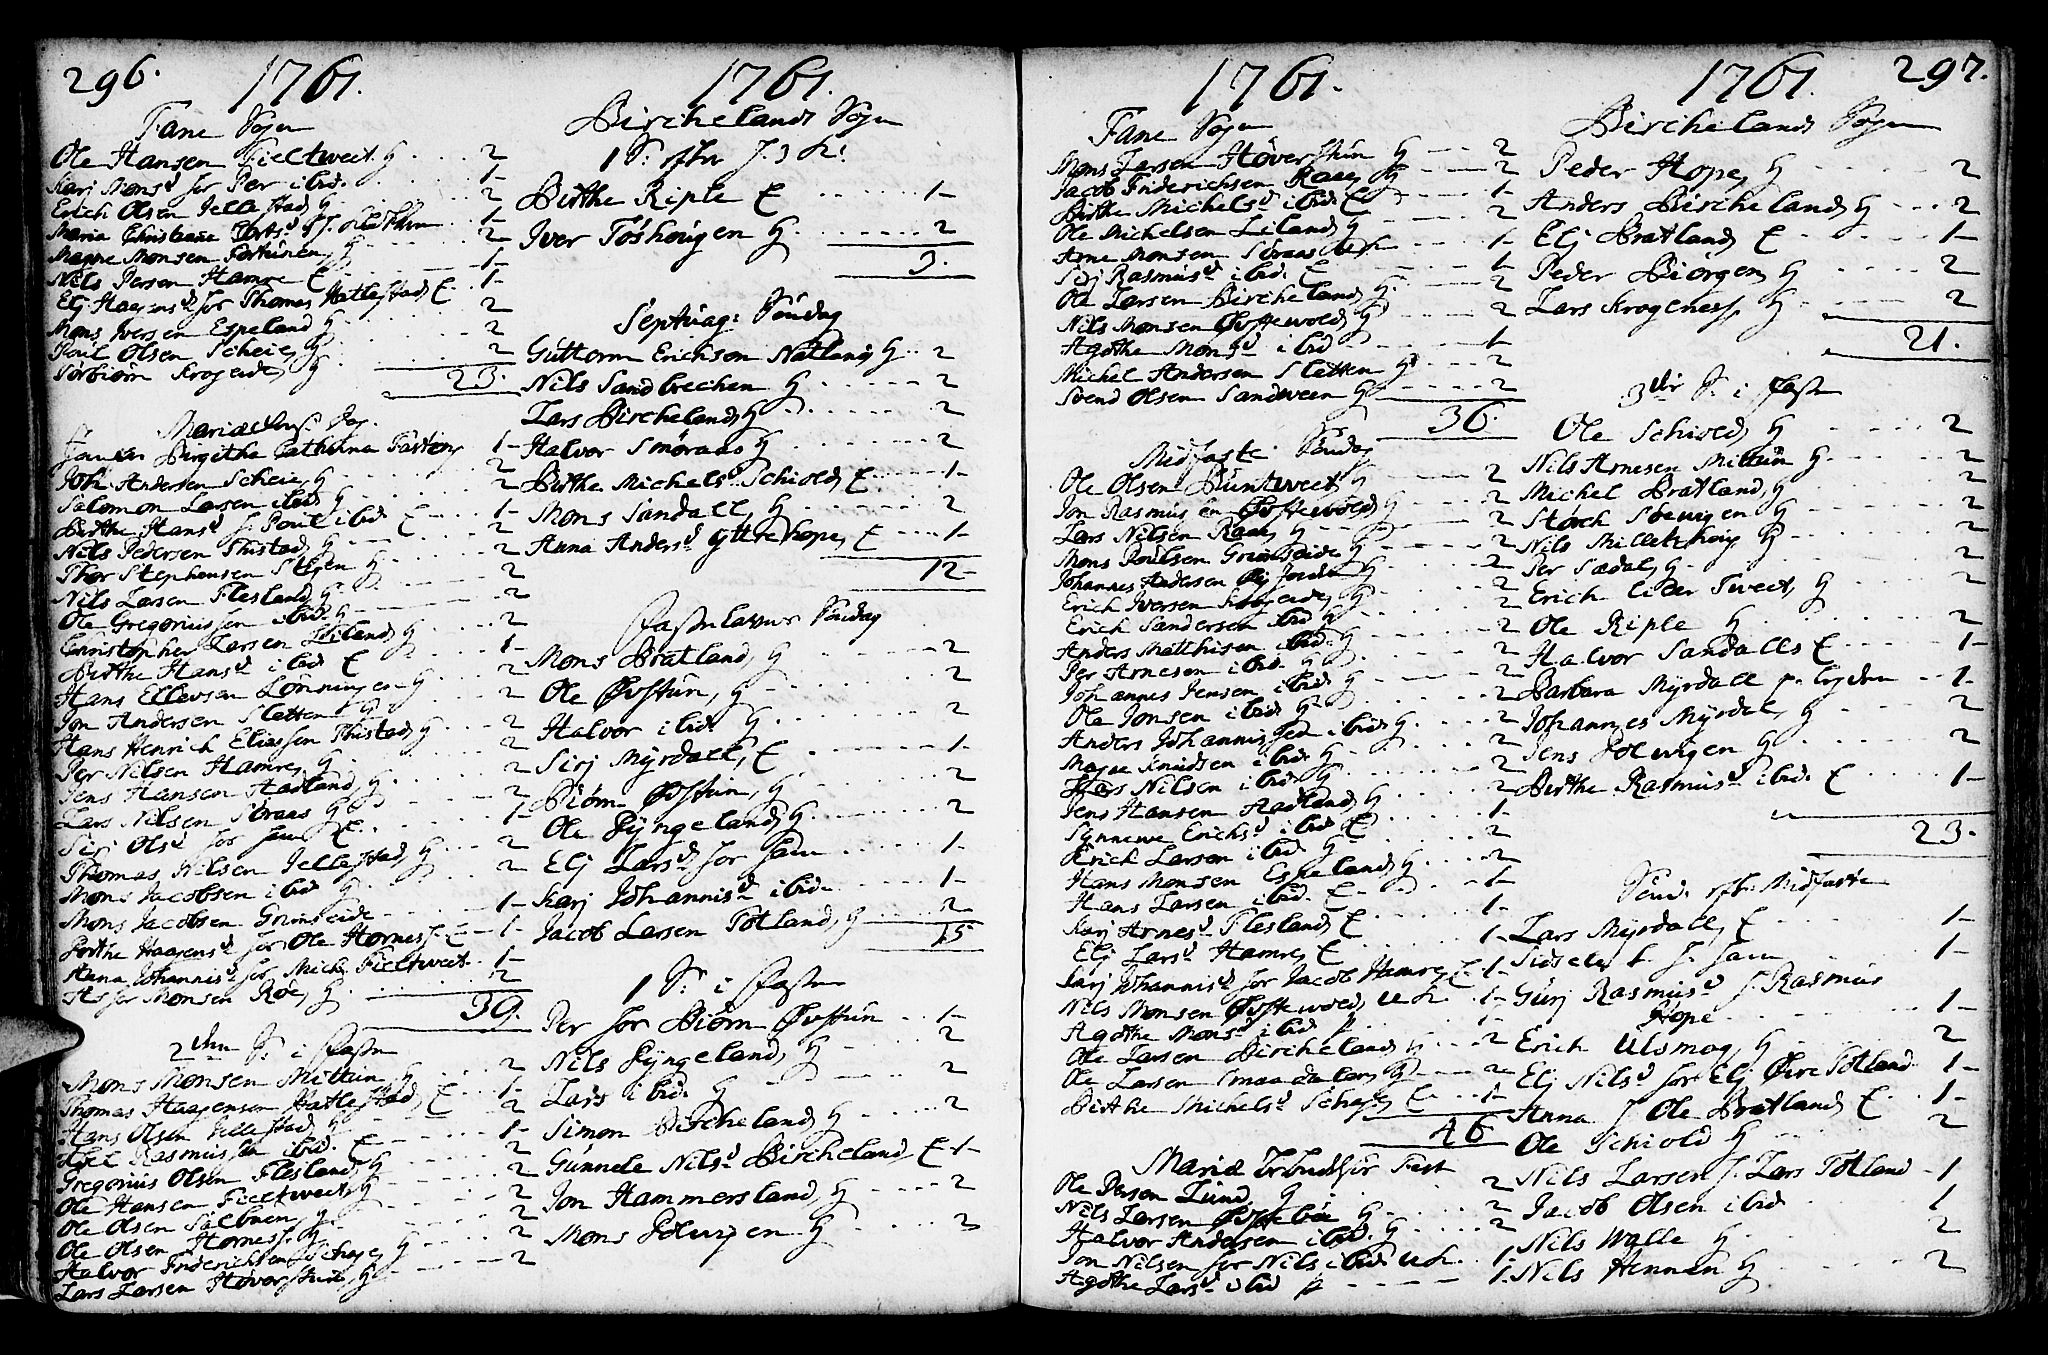 296.
1761.
Fane Sogn
Ole Hansen Fieltweit H 2
Kari Mons^d for Per ibid. 1-
Erich Olsen Jellestad H 2
Maria Christiane 1-
Magne Monsen H 2
Nils Persen Hamre E 1-
Elj Haagens^d for Thomas Hatlestad E 1-
Mons Iversen Espeland H 2
Poul Olsen Scheie H 2
Torbiørn Krogeide H 2
23.
Mariæ
Birgithe Cathrina 1-
Joh: Andersen Scheie H 2
Salomon Larsen ibid H 2
Birthe Hans^d f. Poul ibid E 1-
Nils Pedersen Thistad H 2
Thor Stephensen H 2
Nils Larsen Flesland H 2
Ole Gregoriussen ibid H 2
Christopher Larsen Liland H 2
Birthe Hans^d ibid E 1-
Hans Ellevsen Lønningen H 2
Jon Andersen Sletten H 2
Hans Henrich Eliassen Thistad H 2
Per Nilsen Hamre H 2
Jens Hansen Hadland H 2
Lars Nilsen Søraas H 2
Siri Ols^d for ham E 1-
Thomas Nilsen Jellestad H 2
Mons Jacobsen ibid H 2
Mons Jacobsen Grimseide 1-
Birthe Haagens^d for Ole Hornes E 1-
Anna Johannis^d for Mich: Fieltweit 1-
Monsen Røe H 2
39.
2^den S: i Faste
Mons Monsen Mittun H 2
Thomas Haagensen Hatlestad E 1-
Hans Olsen Jellestad H 2
Rasmussen ibid. E 1-
Gregorius Olsen Flesland H 2
Ole Hansen Fieltweit H 2
Ole Olsen H 2
Ole Olsen Hornes H 2
Halvor Friderichsen Scheye H 2
Lars Larsen Høverstun H 2
1761.
Birchelands Sogn
1 S: efter
Birthe Riple E 1-
Iver Toshougen H 2
3.
Septuag: Søndag
Guttorm Erichsen Natland H 2
Nils Sandbrechen H 2
Lars Bircheland H 2
Halvor Smøraas H 2
Birthe Michels^d Schiold E 1-
Mons Sandall H 2
Anna Anders^d Yttrehope E 1-
12-
Fastelavns Søndag
Mons Bratland H 2
Ole Øvstun H 2
Halvor ibid H 2
Sirj Myrdall E 1-
Biørn Øvstun H 2
Ole Syngeland H 2
Elj Lars^d for ham 1-
Karj Johannis^d ibid 1-
Jacob Larsen Totland H 2
15
1 S: i Faste
Per for Biørn Øvstun 1-
Nils Syngeland H 2
Lars ibid. H 2
Simon Bircheland H 2
Gunnele Nils^d Bircheland E 1-
Jon Hammersland H 2
Mons H 2
1761.
Fane Sogn
Mons Larsen Høverstun H 2
Jacob Friderichsen Raae H 2
Birthe Michels^d ibid E 1-
Ole Michelsen Liland H 2
Arne Monsen Søraas 1-
Sirj Rasmus^d ibid. E 1-
Ole Larsen Bircheland H 2
Nils Monsen Øvstewold H 2
Agothe Mons^d ibid 1-
Michel Andersen Sletten H 2
Svend Olsen Sandween H 2
36.
Midfaste Søndag
Ole Olsen Buntweet H 2
Jon Rasmusen Øvstewold H 2
Lars Nilsen Raae H 2
Mons Poulsen Grimseide H 2
Johannes Andersen H 2
Erich Iversen H 2
Erich Sandersen ibid H 2
Anders Matthisen ibid. H 2
Per Arnesen ibid. H 2
Johannes Jensen ibid H 2
Ole Jonsen ibid H 2
Anders Johannissen ibid H 2
Magne Knudsen ibid H 2
Lars Nilsen ibid H 2
Jens Hansen Hadland H 2
Synnewe Erichs^d ibid E 1-
Erich Larsen ibid H 2
Hans Monsen Espeland H 2
Hans Larsen ibid. E 1-
Karj Arnes^d Flesland E 1-
Elj Lars^d Hamre E 1-
Karj Johannis^d for Jacob Hamre E 1-
Nils Monsen Øvstewold 1-
Agothe Mons^d ibid p 1-
Ole Larsen Bircheland H 2
Ole Larsen Smaadalen H 2
Birthe Michels^d E 1-
46
Mariæ Fest
Ole Persen Lund H 2
Nils Larsen Øvstebøe H 2
Halvor Andersen ibid. H 2
Jon Nilsen for Nils ibid 1-
Agothe Lars^d ibid p 1.
1761.
297.
Birchelands Sogn
Peder Hope H 2
Anders Bircheland H 2
Elj Bratland E 1-
Peder Biørgen H 2
Lars Krogenes H 2
21.
3^die S: i Faste
Ole Schiold H 2
Nils Arnesen Mittun H 2
Michel Bratland H 2
Størch H 2
Nils H 2
Per Sædal H 2
Erich Tweit H 2
Ole Riple H 2
Halvor Sandalls E 1-
Barbara Myrdall 1-
Johannes Myrdal H 2
Jens H 2
Birthe Rasmus^d ibid. E 1-
23.
Sønd: efter Midfaste
Lars Myrdall E 1-
Sidsele f. ham 1-
Gurj Rasmus^d f. Rasmus
Hope 1-
Erich Ulsmog H 2
Elj Nils^d for Elj Øvre Totland 1-
Anna f Ole Bratland E 1-
Ole Schiold H 2
Nils Larsen f. Lars Totland 1
Jacob Olsen ibid 1
Nils Walle H 2
Nils Hennen H 2